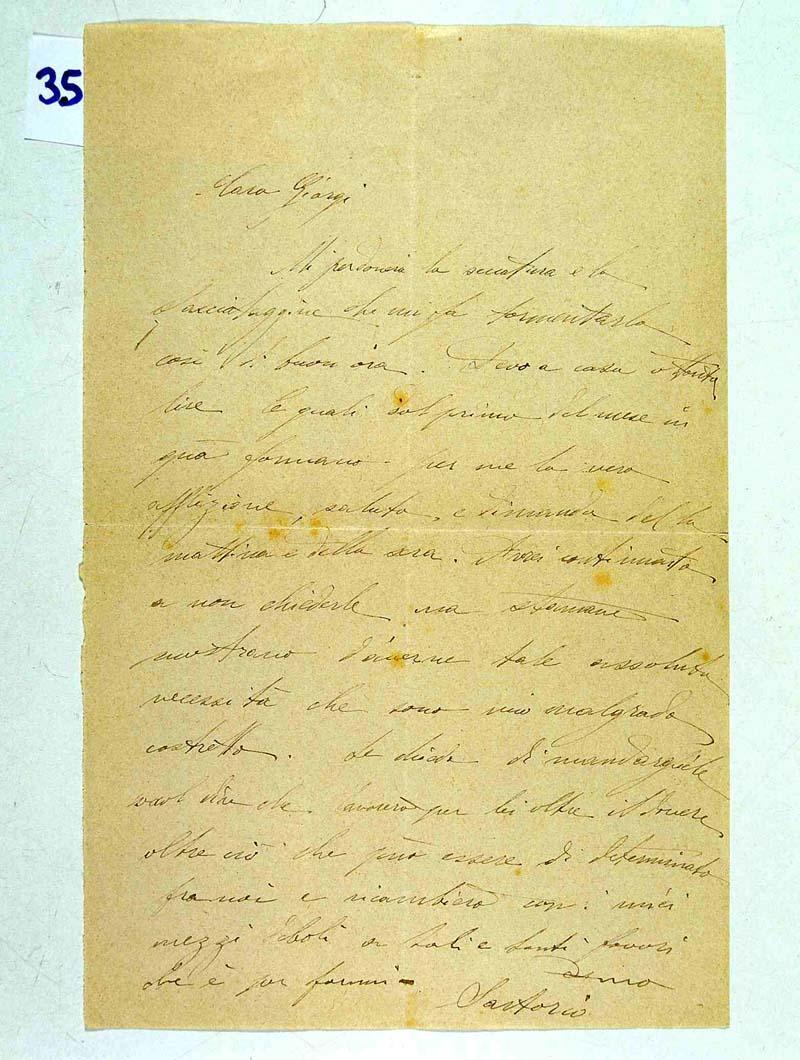 35
Caro Giorgi
Mi perdonerà la seccatura e la
che mi fa tormentarla
così di buon'ora. Devo a casa ottanta
lire le quali dal primo del mese in
quà formano per me la vera
afflizione, saluto, e dimanda della
mattina e della sera. Avrei continuato
a non chiederle ma stamane
mostrano d'averne tale assoluta
necessità che sono mio malgrado
costretto. Le chiedo di mandargliele
vuol dire che lavorerò per lei oltre il dovere
oltre ciò che può essere di determinato
fra noi e ricambierò con i miei
mezzi deboli a tali e tanti favori
che è per farmi -
Sartorio